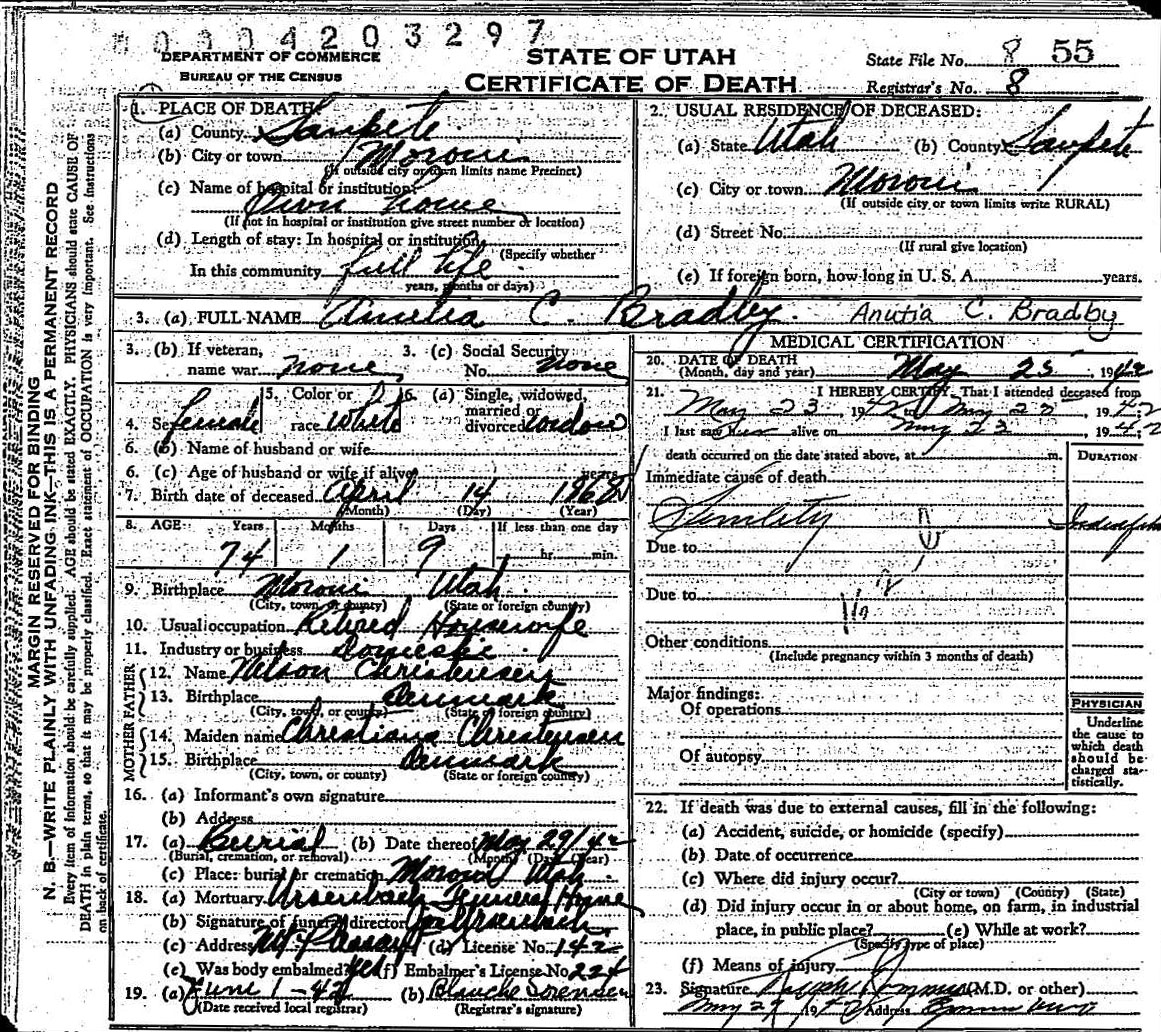 00304203297
DEPARTMENT OF COMMERCE
BUREAU OF THE CENSUS
STATE OF UTAH
CERTIFICATE OF DEATH
State File No. 8 55
Registrar's No. 8
MARGIN RESERVED FOR BINDING
N. B.—WRITE PLAINLY WITH UNFADING INK—THIS IS A PERMANENT RECORD
Every item of information should be carefully supplied. AGE should be stated EXACTLY. PHYSICIANS should state CAUSE OF
DEATH in plain terms, so that it may be properly classified. Exact statement of OCCUPATION is very important. See Instructions
on back of certificate.
1. PLACE OF DEATH
(a) County Sanpete
(b) City or town Moroni
(If outside city or town limits name Precinct)
(c) Name of hospital or institution:
Own home
(If not in hospital or institution give street number or location)
(d) Length of stay: In hospital or institution
(Specify whether
In this community full life
years, months or days)
2. USUAL RESIDENCE OF DECEASED:
(a) State Utah (b) County Sanpete
(c) City or town Moroni
(If outside city or town limits write RURAL)
(d) Street No.
(If rural give location)
(e) If foreign born, how long in U. S. A. years.
3. (a) FULL NAME Amelia C. Bradby. Anutia C. Bradby
3. (b) If veteran, name war none 3. (c) Social Security No. none
4. Sex female 5. Color or race White 6. (a) Single, widowed, married or divorced
6. (b) Name of husband or wife
6. (c) Age of husband or wife if alive years
7. Birth date of deceased April 14 1868
(Month) (Day) (Year)
8. AGE: Years Months Days If less than one day
74 1 9 hr. min.
9. Birthplace Moroni Utah
(City, town, or county) (State or foreign country)
10. Usual occupation Retired Housewife
11. Industry or business Domestic
FATHER
12. Name Nelson Christensen
13. Birthplace Denmark
(City, town, or county) (State or foreign country)
MOTHER
14. Maiden name Christiana Christensen
15. Birthplace Denmark
(City, town, or county) (State or foreign country)
16. (a) Informant's own signature
(b) Address
17. (a) Burial (b) Date thereof May 29/42
(Burial, cremation, or removal) (Month) (Day) (Year)
(c) Place: burial or cremation Moroni Utah
18. (a) Mortuary Ursenbach Funeral Home
(b) Signature of funeral director Ursenbach
(c) Address Mt Pleasant (d) License No. 142
(e) Was body embalmed? Yes (f) Embalmer's License No. 224
19. (a) June 1-42 (b) Blanche Sorensen
(Date received local registrar) (Registrar's signature)
MEDICAL CERTIFICATION
20. DATE OF DEATH
(Month, day and year) May 25, 1942
21. I HEREBY CERTIFY, That I attended deceased from
May 23 1942 to May 25, 1942
I last saw her alive on May 23 1942
death occurred on the date stated above, at m.
DURATION
Immediate cause of death
Senility
Due to
Due to
Other conditions
(Include pregnancy within 3 months of death)
Major findings:
Of operations
Of autopsy
PHYSICIAN
Underline
the cause to
which death
should be
charged sta-
tistically.
22. If death was due to external causes, fill in the following:
(a) Accident, suicide, or homicide (specify)
(b) Date of occurrence
(c) Where did injury occur?
(City or town) (County) (State)
(d) Did injury occur in or about home, on farm, in industrial
place, in public place? (e) While at work?
(Specify type of place)
(f) Means of injury
23. Signature (M.D. or other)
May 27 1942 Address